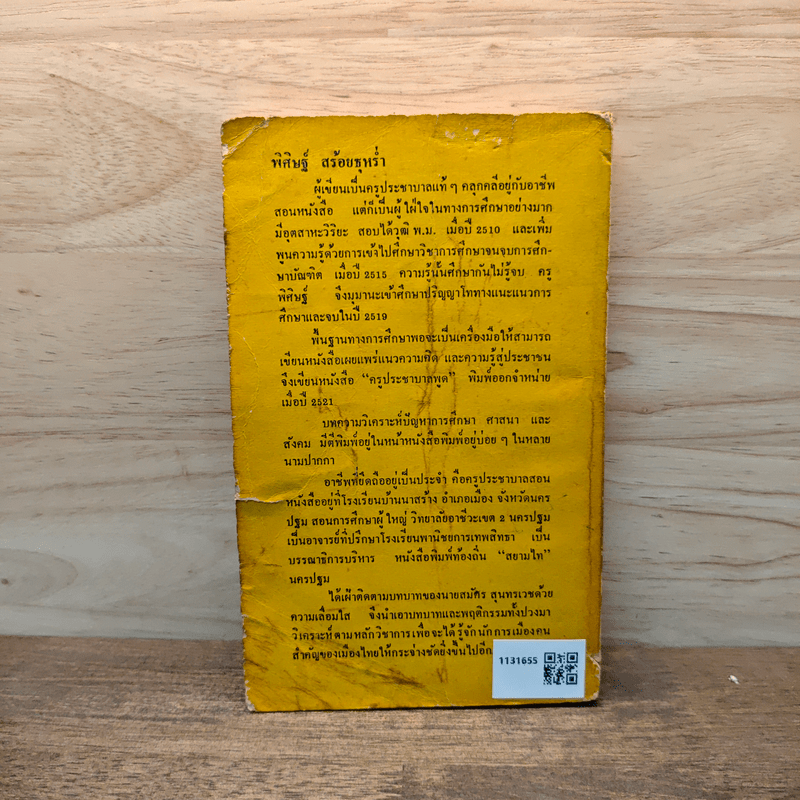 พิศิษฐ์ สร้อยธุหร่ำ
ผู้เขียนเป็นครูประชาบาลแท้ ๆ คลุกคลีอยู่กับอาชีพ
สอนหนังสือ แต่ก็เป็นผู้ใฝ่ใจในทางการศึกษาอย่างมาก
มีอุตสาหะวิริยะ สอบได้วุฒิ พ.ม. เมื่อปี 2510 และเพิ่ม
พูนความรู้ด้วยการเข้าไปศึกษาวิชาการศึกษาจนจบการศึก-
ษาบัณฑิต เมื่อปี 2515 ความรู้นั้นศึกษากันไม่รู้จบ ครู
พิศิษฐ์ จึงมุมานะเข้าศึกษาปริญญาโททางแนะแนวการ
ศึกษาและจบในปี 2519
พื้นฐานทางการศึกษาพอจะเป็นเครื่องมือให้สามารถ
เขียนหนังสือเผยแพร่แนวความคิด และความรู้สู่ประชาชน
จึงเขียนหนังสือ “ครูประชาบาลพูด” พิมพ์ออกจำหน่าย
เมื่อปี 2521
บทความวิเคราะห์ปัญหาการศึกษา ศาสนา และ
สังคม มีตีพิมพ์อยู่ในหน้าหนังสือพิมพ์อยู่บ่อย ๆ ในหลาย
นามปากกา
อาชีพที่ยึดถืออยู่เป็นประจำ คือครูประชาบาลสอน
หนังสืออยู่ที่โรงเรียนบ้านนาสร้าง อำเภอเมือง จังหวัดนคร
ปฐม สอนการศึกษาผู้ใหญ่ วิทยาลัยอาชีวะเขต 2 นครปฐม
เป็นอาจารย์ที่ปรึกษาโรงเรียนพานิชยการเทพสิทธา เป็น
บรรณาธิการบริหาร หนังสือพิมพ์ท้องถิ่น “สยามไท”
นครปฐม
ได้เฝ้าติดตามบทบาทของนายสมัคร สุนทรเวชด้วย
ความเลื่อมใส จึงนำเอาบทบาทและพฤติกรรมทั้งปวงมา
วิเคราะห์ตามหลักวิชาการเพื่อจะได้รู้จักนักการเมืองคน
สำคัญของเมืองไทยให้กระจ่างชัดยิ่งขึ้นไปอีก
1131655